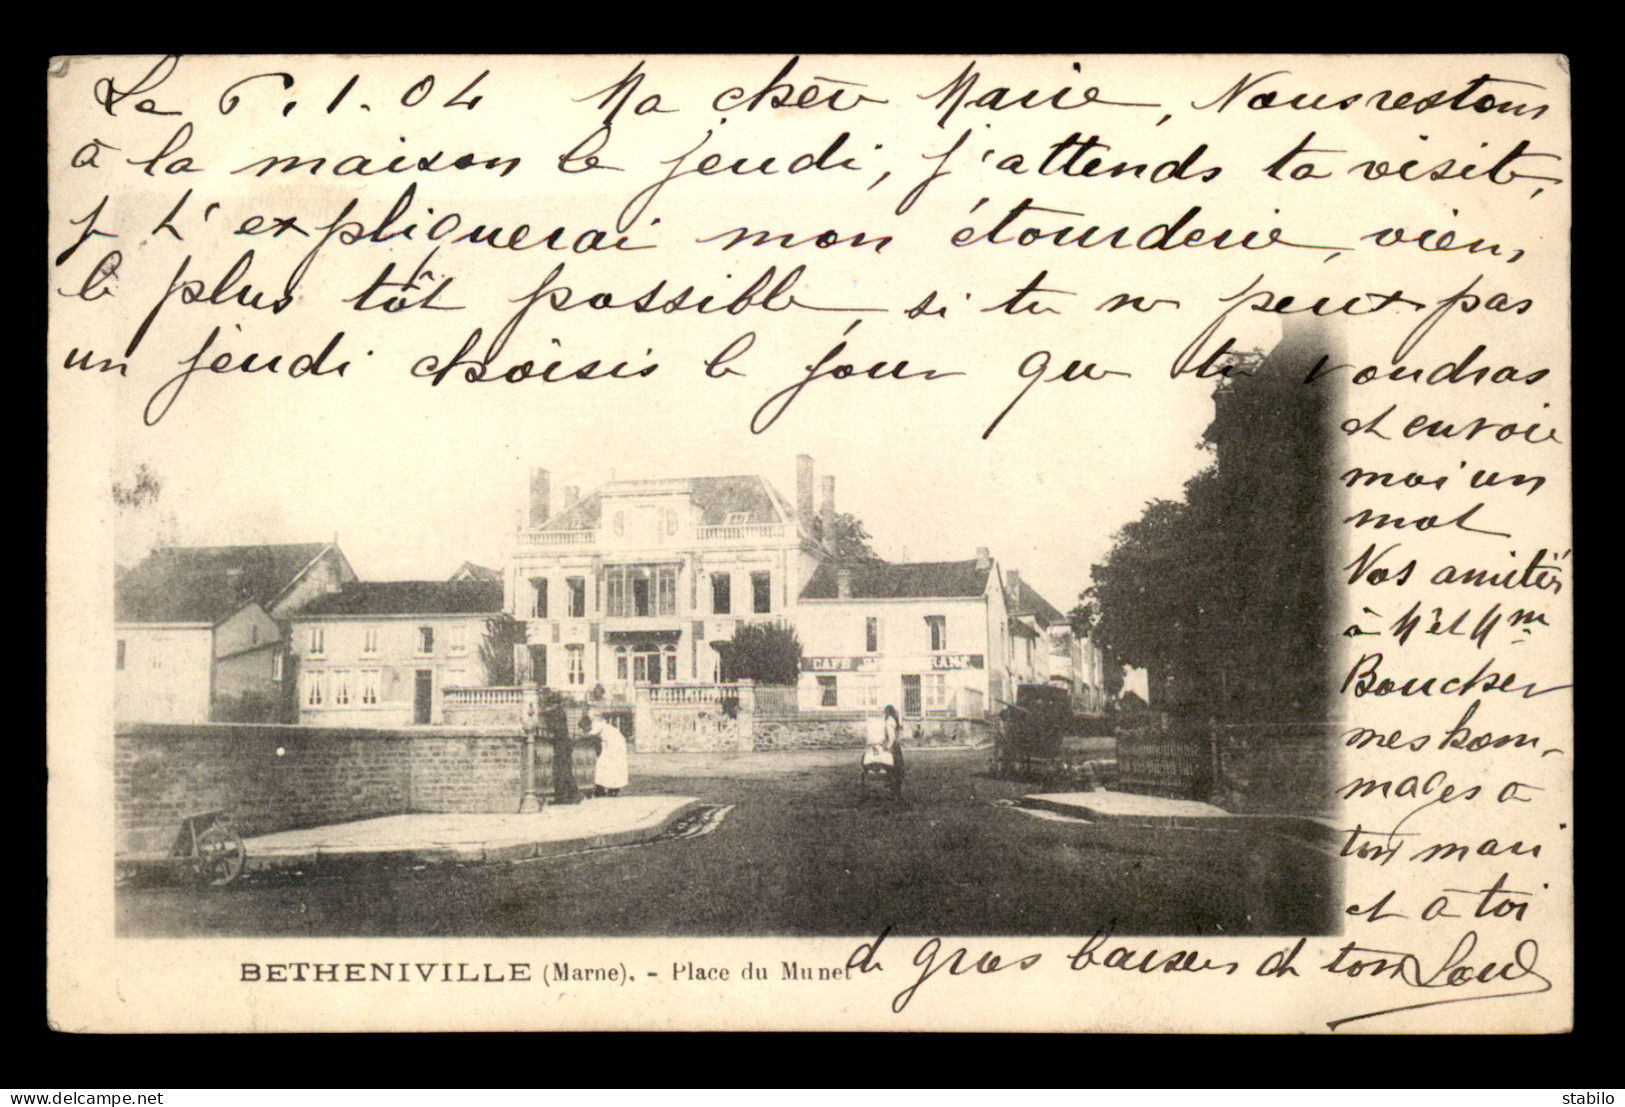 Le 6.1.04 Ma chère Marie, Nous restons
à la maison le jeudi, j'attends ta visite,
je t'expliquerai mon étourderie, viens
le plus tôt possible, si tu ne peux pas
un jeudi choisis le jour que tu voudras
et envoie
moi un
mot
Vos amitiés
à Mr et Mme
Boucher
mes hom-
mages à
ton mari
et à toi
de gros baisers de ton
CAFE
BETHENIVILLE (Marne). - Place du Munet
stabilo